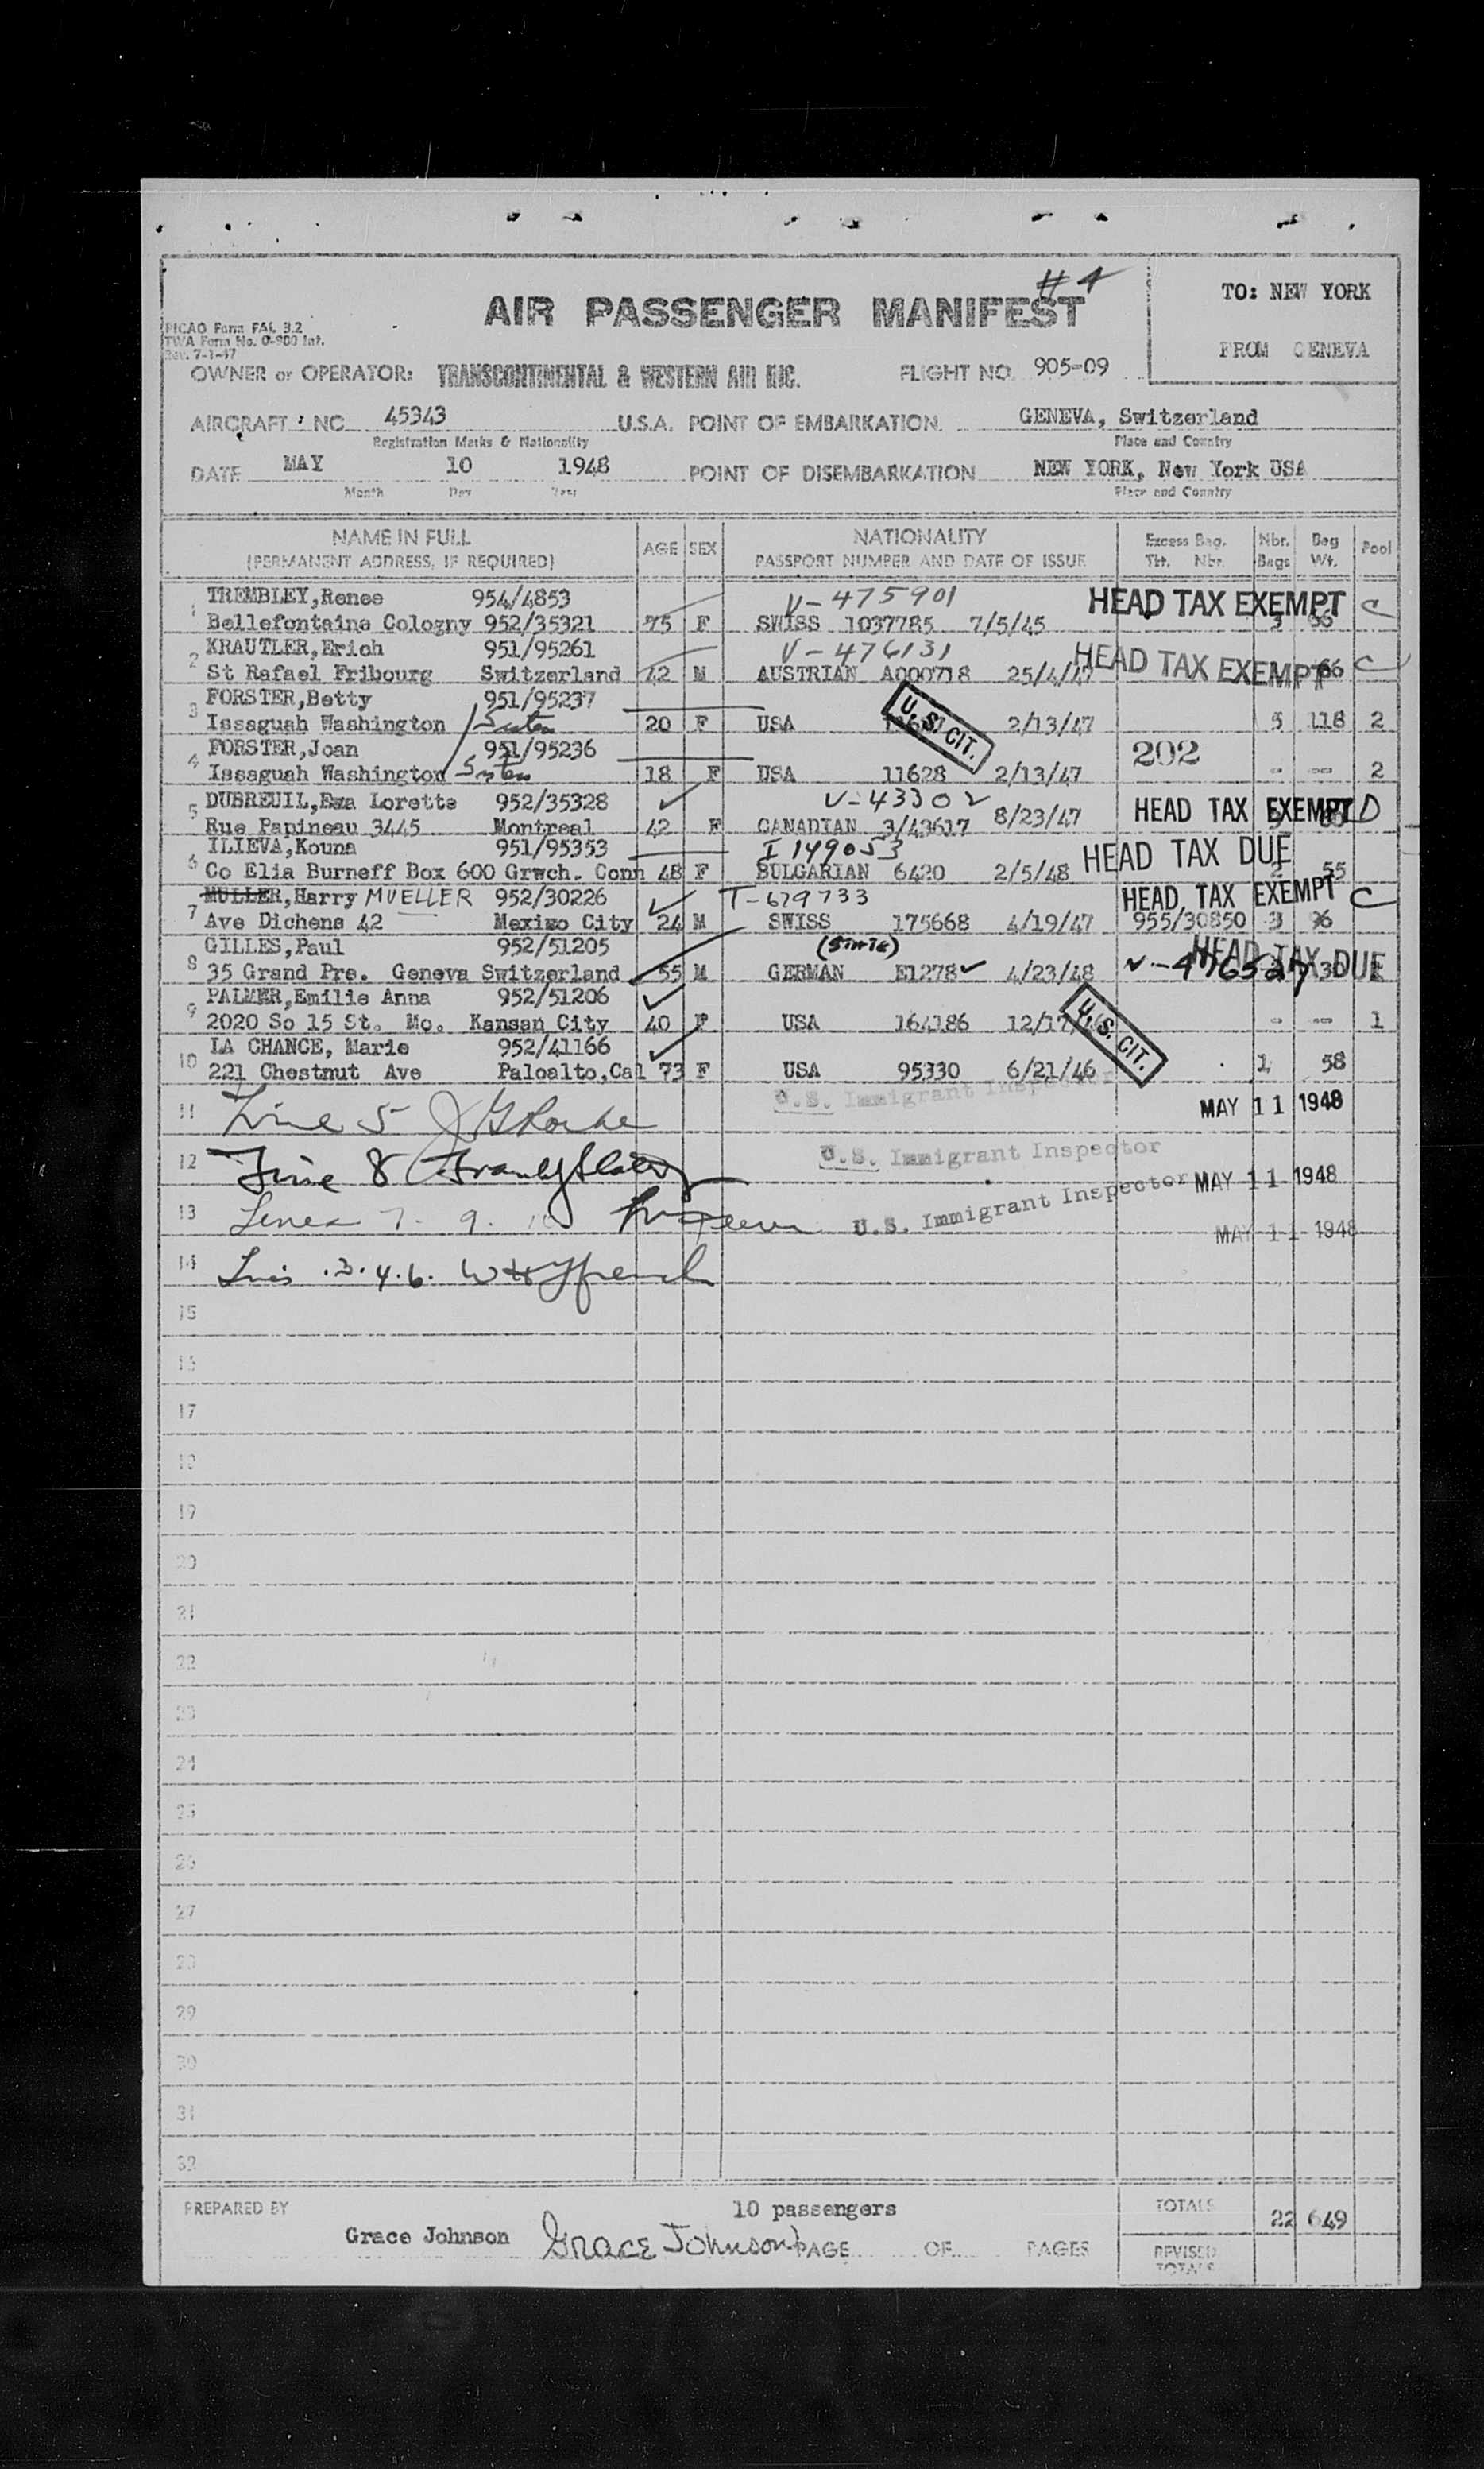 #4
AIR PASSENGER MANIFEST
TO: NEW YORK
FROM GENEVA
PICAO Form FAL 3.2
TWA Form No. 0-900 Int.
Rev. 7-1-47
OWNER or OPERATOR: TRANSCONTINENTAL & WESTERN AIR INC. FLIGHT NO. 905-09
AIRCRAFT: NO 45343 U.S.A. POINT OF EMBARKATION GENEVA, Switzerland
Registration Marks & Nationality Place and Country
DATE MAY 10 1948 POINT OF DISEMBARKATION NEW YORK, New York USA
Month Day Year Place and Country
NAME IN FULL AGE SEX NATIONALITY Excess Bag. Nbr. Bag Pool
(PERMANENT ADDRESS, IF REQUIRED) PASSPORT NUMBER AND DATE OF ISSUE Tkt. Nbr. Bags Wt.
TREMBLEY,Renee 954/4853 V-475901 HEAD TAX EXEMPT C
1 Bellefontaine Cologny 952/35321 75 F SWISS 1037785 7/5/45 3 66
KRAUTLER,Erich 951/95261 V-476131 HEAD TAX EXEMPT C
2 St Rafael Fribourg Switzerland 42 M AUSTRIAN A000718 25/4/47 66
FORSTER,Betty 951/95237
3 Issaguah Washington Sister 20 F USA U.S. CIT. 2/13/47 5 118 2
FORSTER,Joan 951/95236 202
4 Issaguah Washington Sister 18 F USA 11628 2/13/47 - -- 2
DUBREUIL,Ema Lorette 952/35328 V-43302 HEAD TAX EXEMPT D
5 Rue Papineau 3445 Montreal 42 F CANADIAN 3/43617 8/23/47
ILIEVA,Kouna 951/95353 I 149053 HEAD TAX DUE
6 Co Elia Burneff Box 600 Grwch. Conn 48 F BULGARIAN 6420 2/5/48 2 55
MULLER,Harry MUELLER 952/30226 T-679733 HEAD TAX EXEMPT C
7 Ave Dichens 42 Mexixo City 24 M SWISS 175668 4/19/47 955/30850 3 96
GILLES,Paul 952/51205 HEAD TAX DUE
8 35 Grand Pre. Geneva Switzerland 55 M GERMAN E1278 4/23/48
PALMER,Emilie Anna 952/51206
9 2020 So 15 St. Mo. Kansan City 40 F USA 164186 12/17/46 U.S. CIT. - -- 1
LA CHANCE, Marie 952/41166
10 221 Chestnut Ave Paloalto,Cal 73 F USA 95330 6/21/46 1 58
U.S. Immigrant Inspector
11 Line 5 MAY 11 1948
U.S. Immigrant Inspector
12 Line 8 MAY 11 1948
13 Lines 7. 9. 10 U.S. Immigrant Inspector MAY 11 1948
14 Lines 3.4.6.
15
16
17
18
19
20
21
22
23
24
25
26
27
28
29
30
31
32
PREPARED BY 10 passengers TOTALS 22 649
Grace Johnson Grace Johnson PAGE OF PAGES REVISED
TOTALS